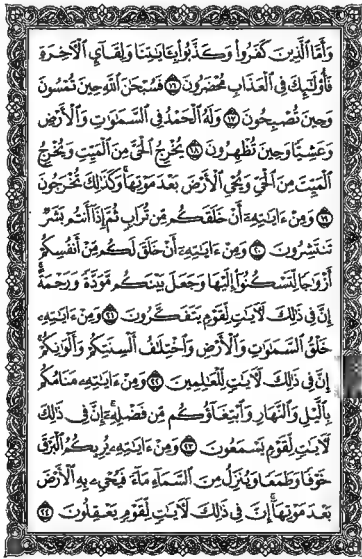 وَأَمَّا ٱلَّذِينَ كَفَرُوا۟ وَكَذَّبُوا۟ بِـَٔايَـٰتِنَا وَلِقَآئِ ٱلْـَٔاخِرَةِ
فَأُو۟لَـٰٓئِكَ فِى ٱلْعَذَابِ مُحْضَرُونَ ١٦ فَسُبْحَـٰنَ ٱللَّهِ حِينَ تُمْسُونَ
وَحِينَ تُصْبِحُونَ ١٧ وَلَهُ ٱلْحَمْدُ فِى ٱلسَّمَـٰوَٰتِ وَٱلْأَرْضِ
وَعَشِيًّا وَحِينَ تُظْهِرُونَ ١٨ يُخْرِجُ ٱلْحَىَّ مِنَ ٱلْمَيِّتِ وَيُخْرِجُ
ٱلْمَيِّتَ مِنَ ٱلْحَىِّ وَيُحْىِ ٱلْأَرْضَ بَعْدَ مَوْتِهَا وَكَذَٰلِكَ تُخْرَجُونَ
١٩ وَمِنْ ءَايَـٰتِهِۦٓ أَنْ خَلَقَكُم مِّن تُرَابٍ ثُمَّ إِذَآ أَنتُم بَشَرٌ
تَنتَشِرُونَ ٢٠ وَمِنْ ءَايَـٰتِهِۦٓ أَنْ خَلَقَ لَكُم مِّنْ أَنفُسِكُمْ
أَزْوَٰجًا لِّتَسْكُنُوٓا۟ إِلَيْهَا وَجَعَلَ بَيْنَكُم مَّوَدَّةً وَرَحْمَةً
إِنَّ فِى ذَٰلِكَ لَـَٔايَـٰتٍ لِّقَوْمٍ يَتَفَكَّرُونَ ٢١ وَمِنْ ءَايَـٰتِهِۦ
خَلْقُ ٱلسَّمَـٰوَٰتِ وَٱلْأَرْضِ وَٱخْتِلَـٰفُ أَلْسِنَتِكُمْ وَأَلْوَٰنِكُمْ
إِنَّ فِى ذَٰلِكَ لَـَٔايَـٰتٍ لِّلْعَـٰلِمِينَ ٢٢ وَمِنْ ءَايَـٰتِهِۦ مَنَامُكُم
بِٱلَّيْلِ وَٱلنَّهَارِ وَٱبْتِغَآؤُكُم مِّن فَضْلِهِۦٓ إِنَّ فِى ذَٰلِكَ
لَـَٔايَـٰتٍ لِّقَوْمٍ يَسْمَعُونَ ٢٣ وَمِنْ ءَايَـٰتِهِۦ يُرِيكُمُ ٱلْبَرْقَ
خَوْفًا وَطَمَعًا وَيُنَزِّلُ مِنَ ٱلسَّمَآءِ مَآءً فَيُحْىِۦ بِهِ ٱلْأَرْضَ
بَعْدَ مَوْتِهَآ إِنَّ فِى ذَٰلِكَ لَـَٔايَـٰتٍ لِّقَوْمٍ يَعْقِلُونَ ٢٤